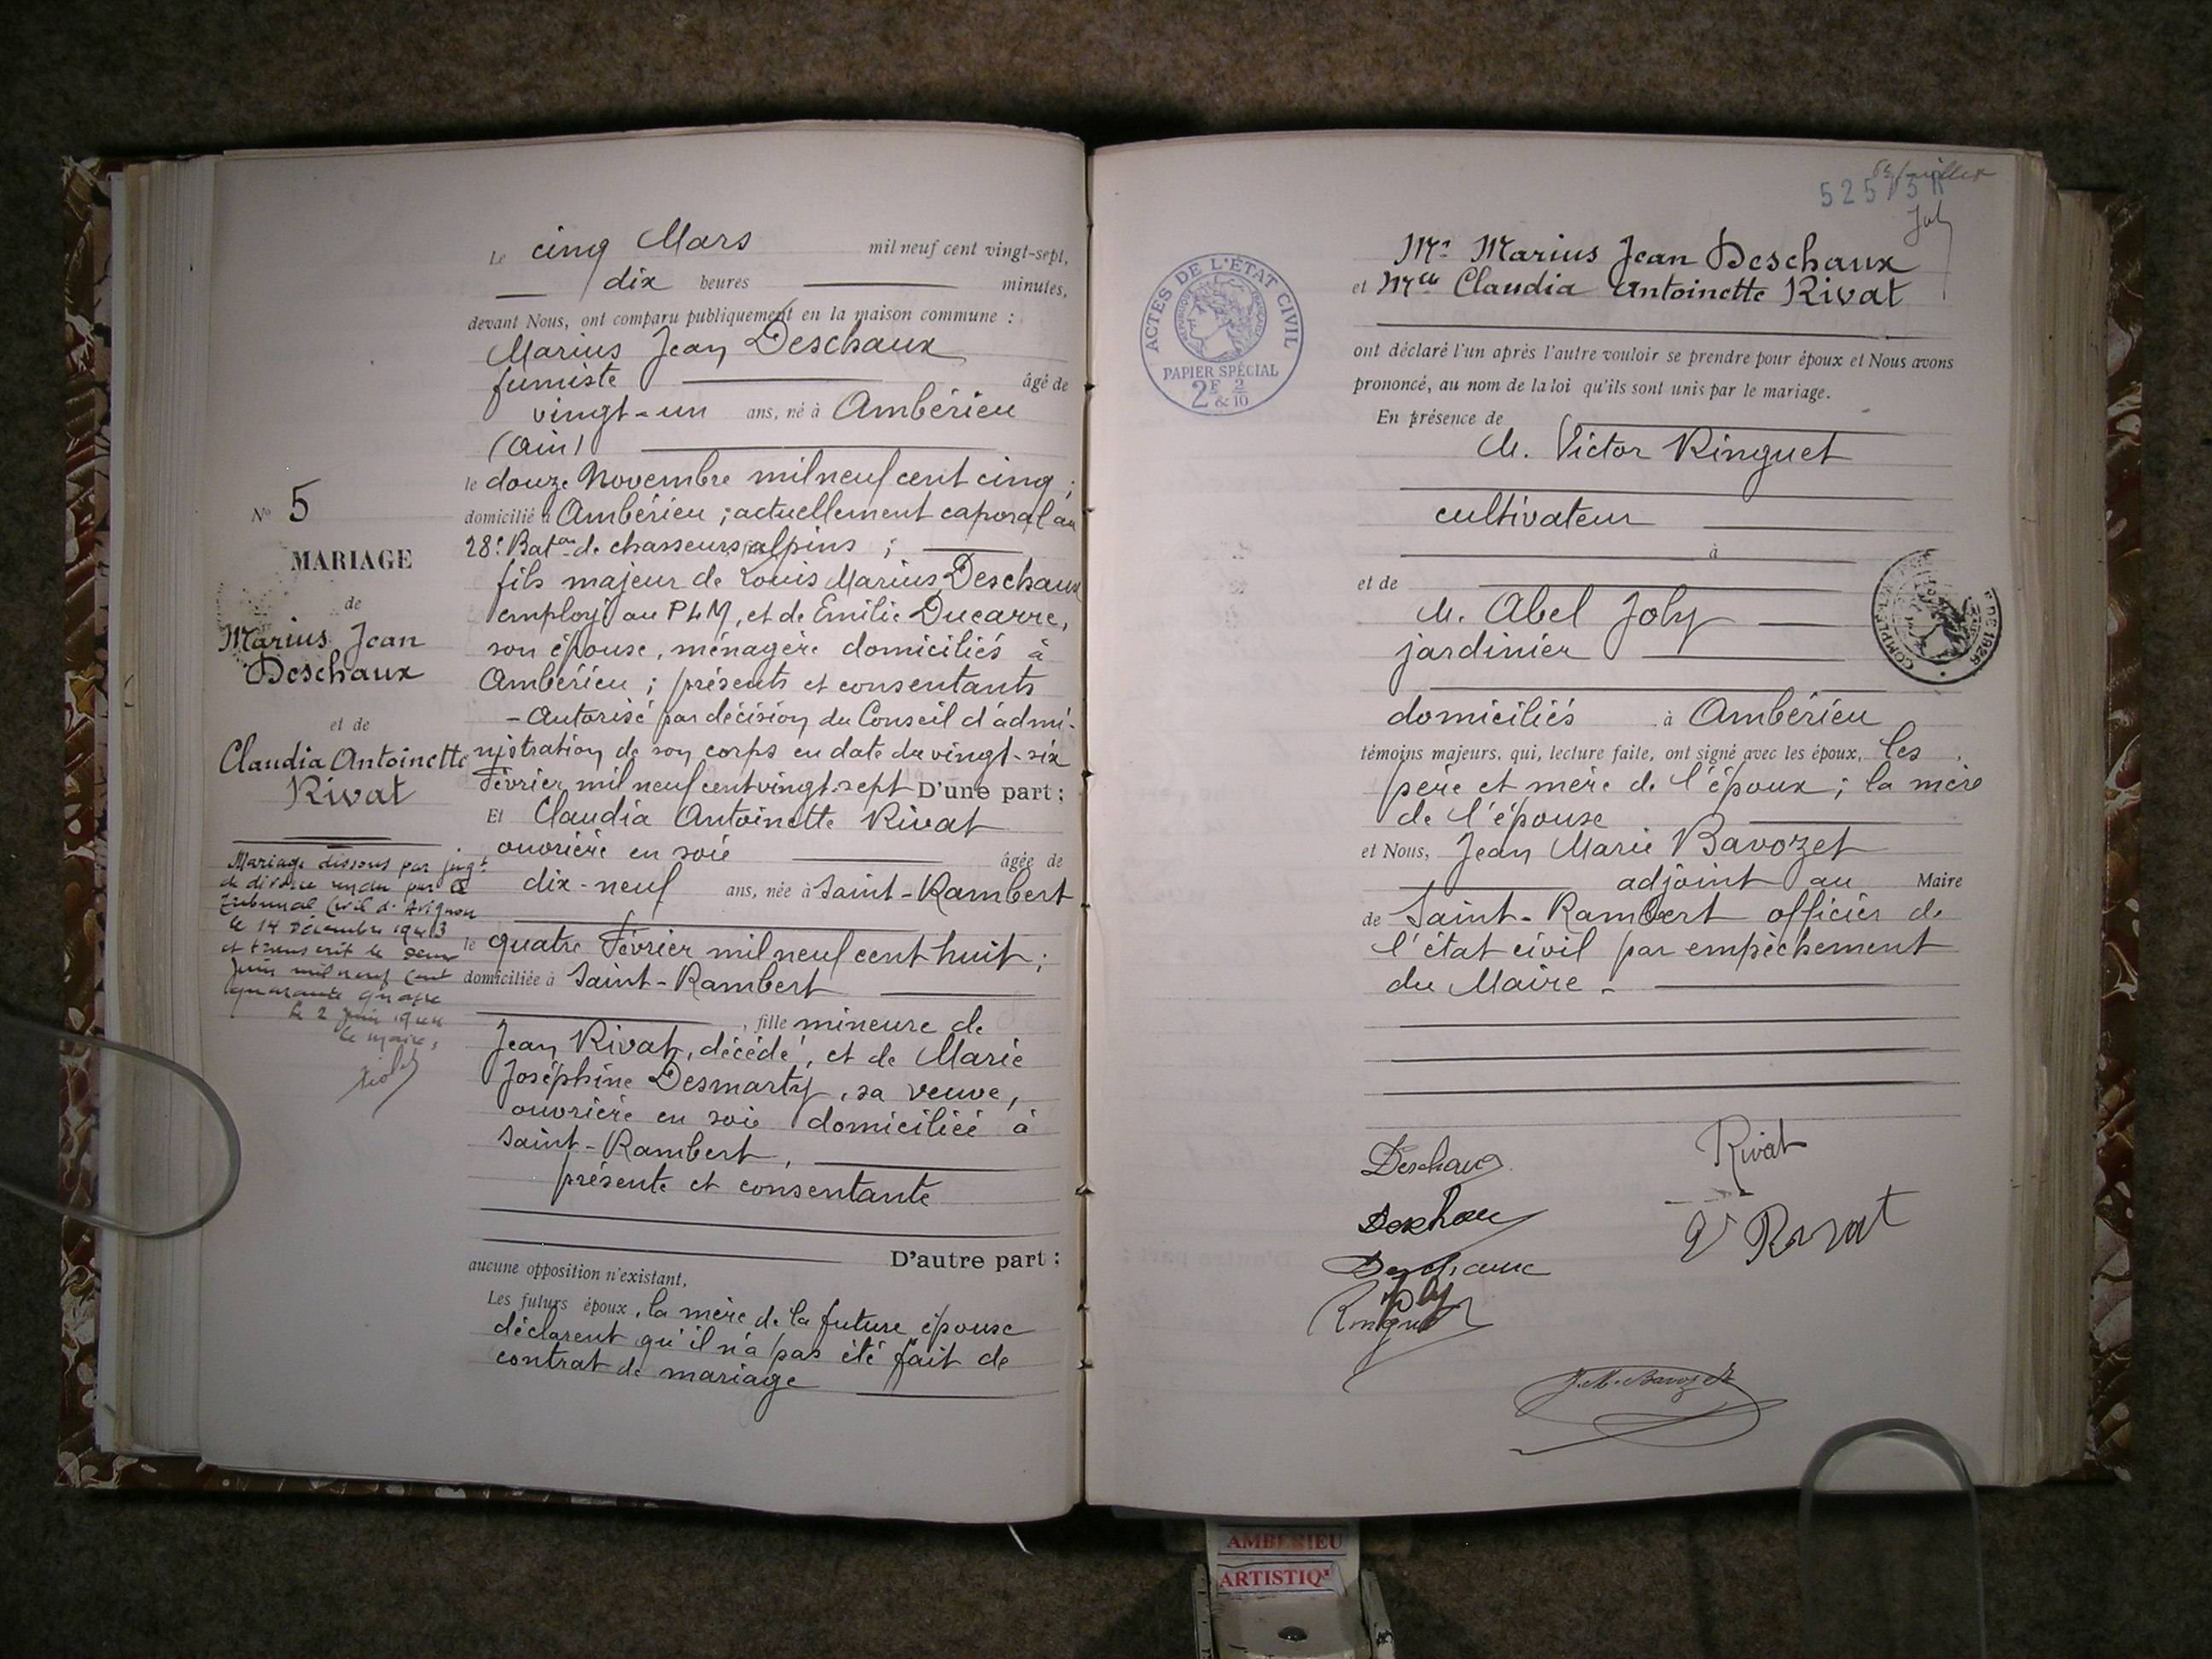 Le cinq Mars mil neuf cent vingt-sept,
dix heures minutes,
devant Nous, ont comparu publiquement en la maison commune :
Marius Jean Deschaux
fumiste âgé de
vingt-un ans, né à Ambérieu
(Ain)
le douze Novembre mil neuf cent cinq ;
domicilié à Ambérieu ; actuellement caporal au
28e Baton de chasseurs alpins ;
fils majeur de Louis Marius Deschaux
employé au PLM, et de Emilie Ducarre,
son épouse, ménagère domiciliés à
Ambérieu ; présents et consentants
- Autorisé par décision du Conseil d'admi-
nistration de son corps en date du vingt-six
Février mil neuf cent vingt-sept D'une part :
Et Claudia Antoinette Rivat
ouvrière en soie âgée de
dix-neuf ans, née à Saint-Rambert
le quatre Février mil neuf cent huit ;
domiciliée à Saint-Rambert
, fille mineure de
Jean Rivat, décédé, et de Marie
Joséphine Desmarty, sa veuve,
ouvrière en soie domiciliée à
Saint-Rambert,
présente et consentante
D'autre part :
aucune opposition n'existant,
Les futurs époux, la mère de la future épouse
déclarent qu'il n'a pas été fait de
contrat de mariage
No 5
MARIAGE
de
Marius Jean
Deschaux
et de
Claudia Antoinette
Rivat
Mariage dissous par jugt
de divorce rendu par le
Tribunal Civil d'Avignon
le 14 Décembre 1943
et transcrit le deux
Juin mil neuf cent
quarante quatre
le 2 Juin 1944
le maire,
525
Mr Marius Jean Deschaux
et Melle Claudia Antoinette Rivat
ACTES DE L'ÉTAT CIVIL
PAPIER SPÉCIAL
2F & 2/10
ont déclaré l'un après l'autre vouloir se prendre pour époux et Nous avons
prononcé, au nom de la loi qu'ils sont unis par le mariage.
En présence de
M. Victor Ringuet
cultivateur
à
et de
M. Abel Joly
jardinier
domiciliés à Ambérieu
témoins majeurs, qui, lecture faite, ont signé avec les époux, les
père et mère de l'époux ; la mère
de l'épouse
et Nous, Jean Marie Bavozet
adjoint au Maire
de Saint-Rambert officier de
l'état civil par empêchement
du Maire.
Deschaux
Rivat
Deschaux
Vve Rivat
Deschaux
Joly
Ringuet
J.M. Bavozet
AMBERIEU
ARTISTIQ